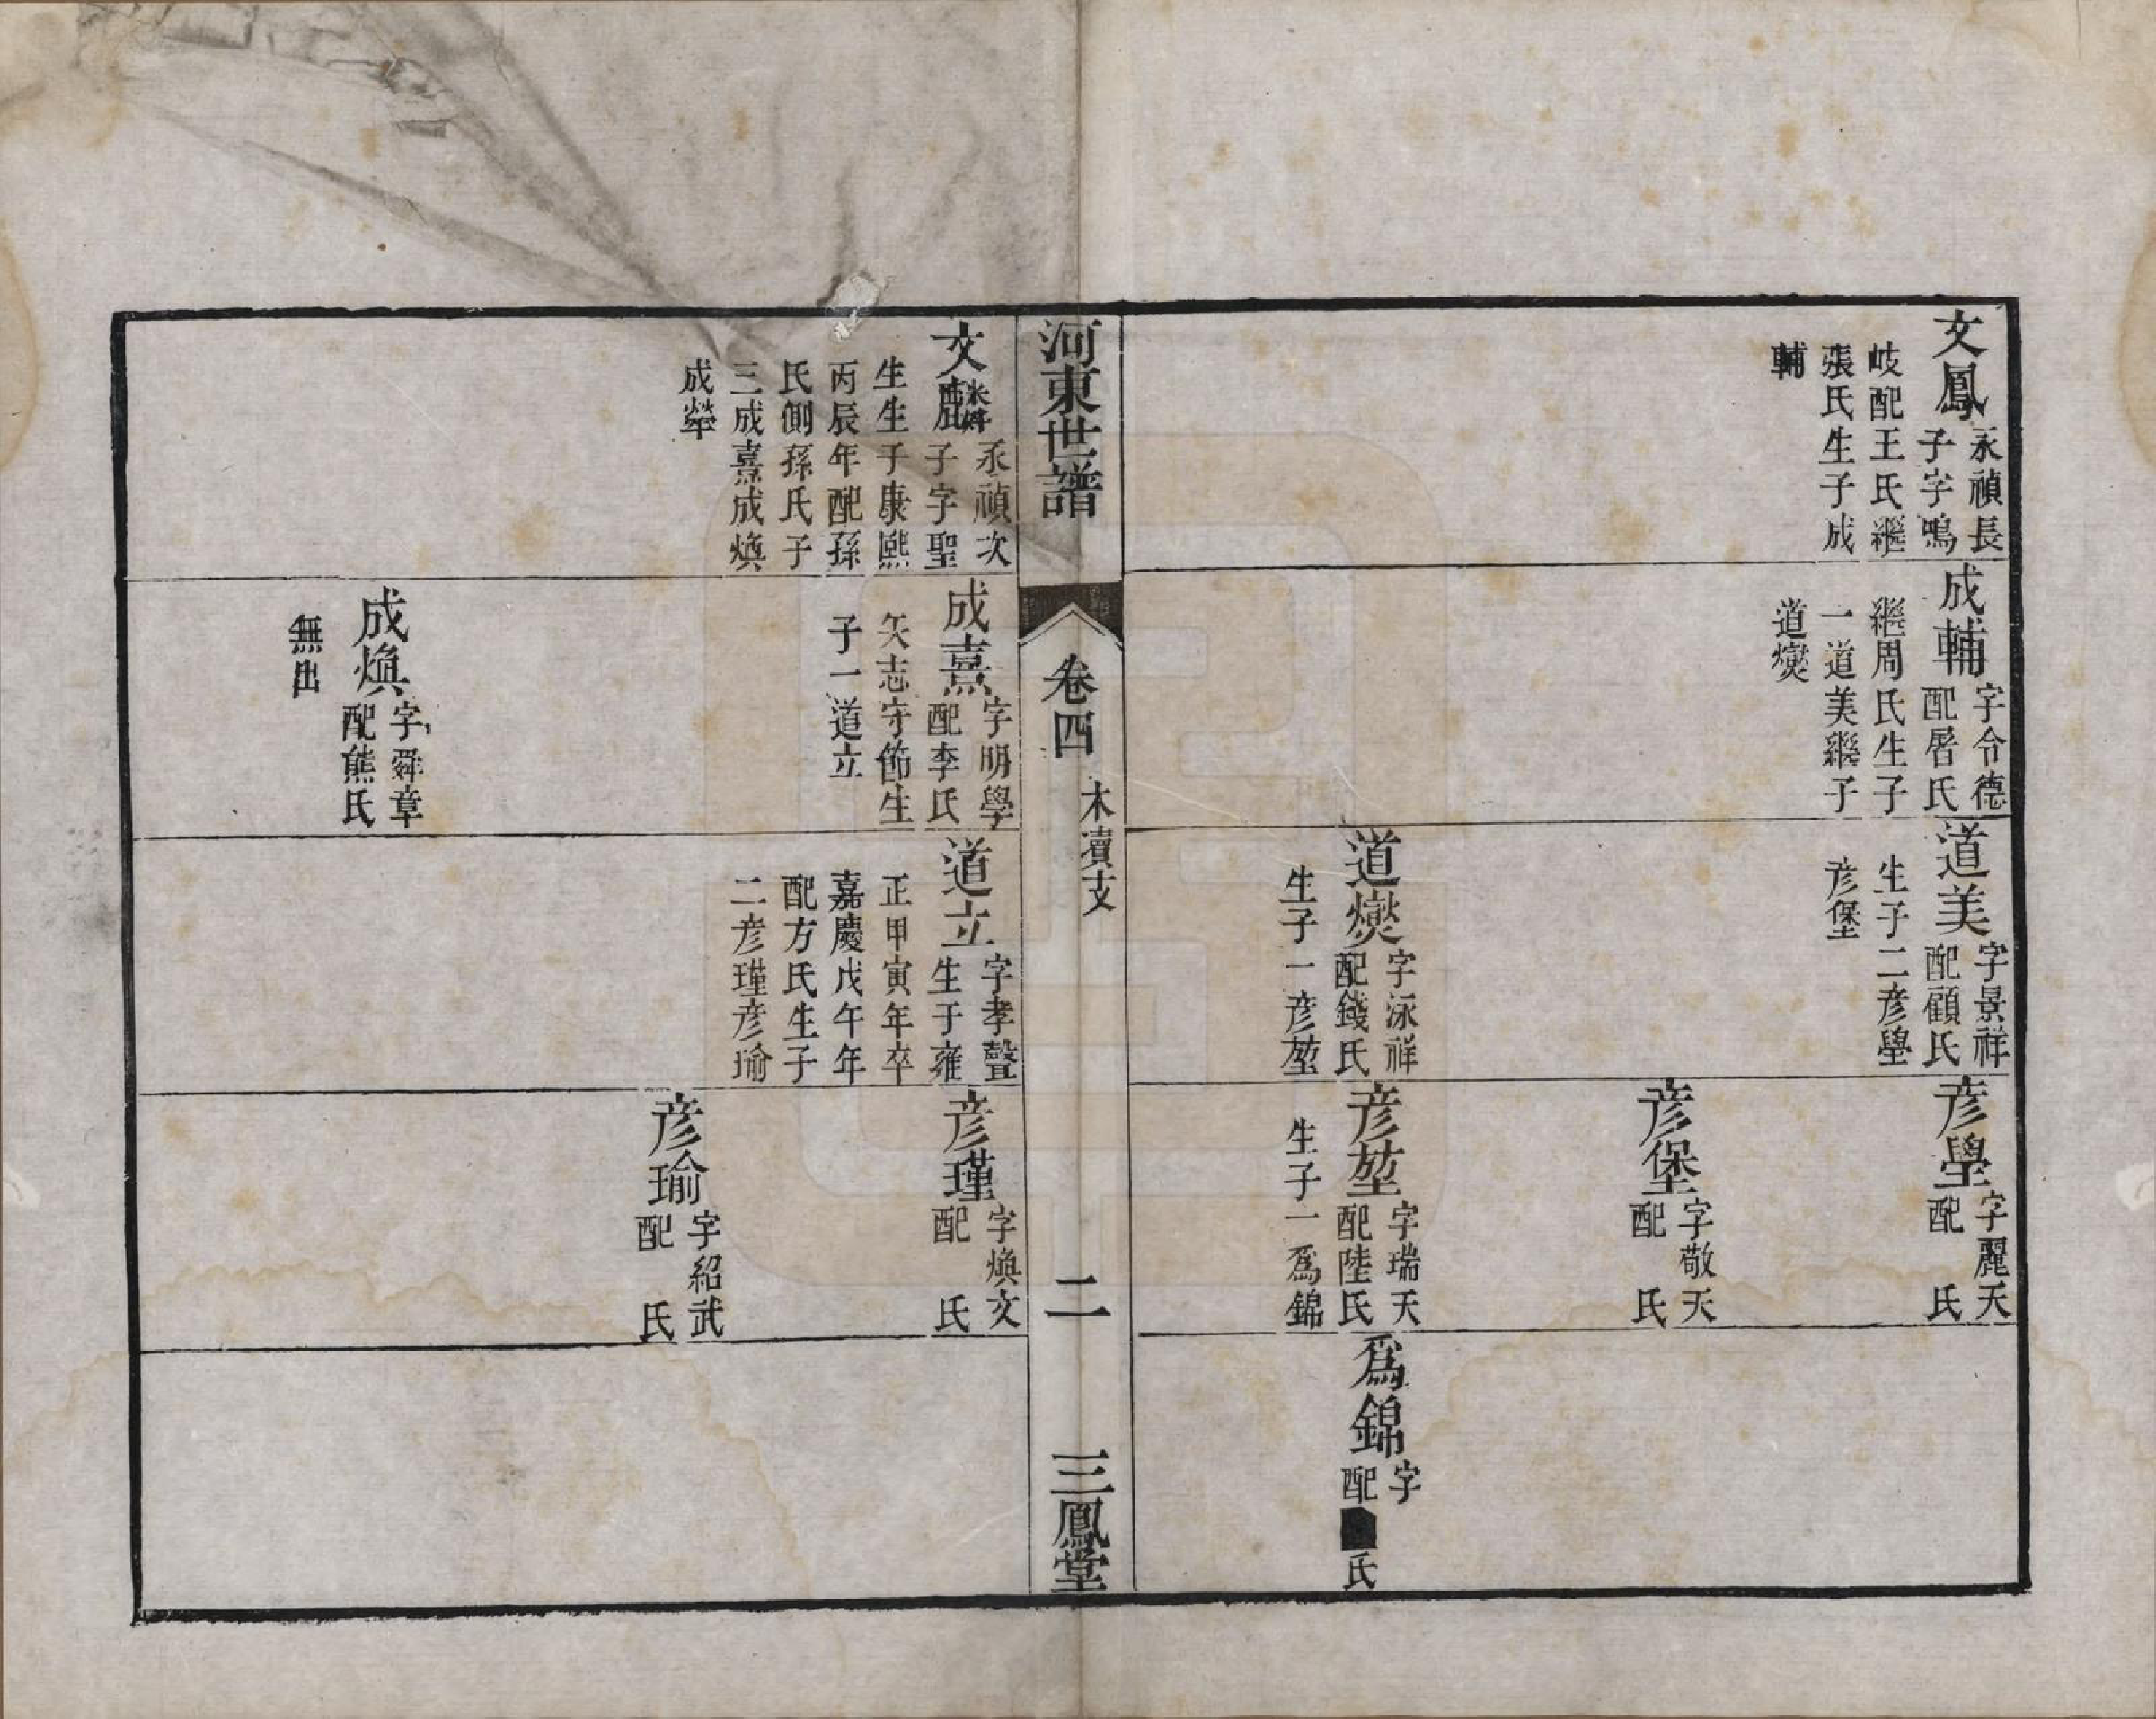 文鳳
永禎長
子字鳴
岐配王氏繼
張氏生子成
輔
成輔
字令德
配屠氏
繼周氏生子
一道美繼子
道爕
道美
字景祥
配顧氏
生子二彥壆
彥堡
道爕
字泳祥
配錢氏
生子一彥堃
彥壆
字麗天
配　氏
彥堡
字敬天
配　氏
彥堃
字瑞天
配陸氏
生子一爲錦
爲錦
字
配　氏
河東世譜
卷四
木瀆支
二
三鳳堂
文麟
永禎次
子字聖
生生于康熙
丙辰年配孫
氏側孫氏子
三成熹成煥
成犖
成熹
字明學
配李氏
矢志守節生
子一道立
成煥
字舜章
配熊氏
無出
道立
字孝聲
生于雍
正甲寅年卒
嘉慶戊午年
配方氏生子
二彥瑾彥瑜
彥瑾
字煥文
配　氏
彥瑜
字紹武
配　氏